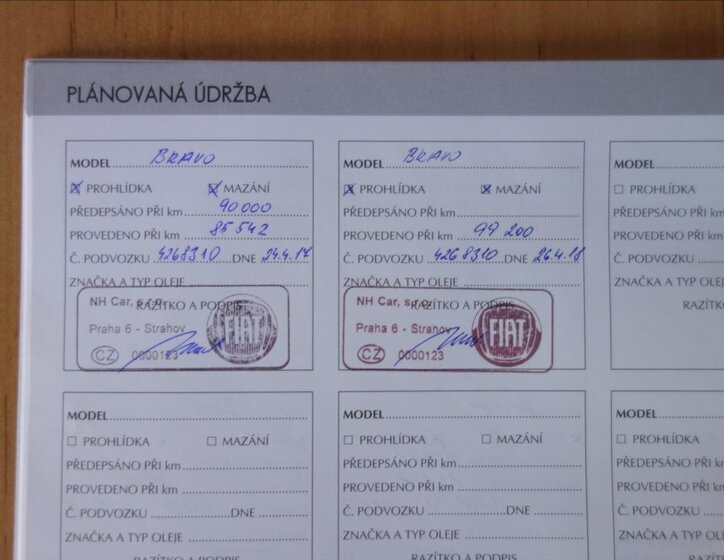 PLÁNOVANÁ ÚDRŽBA
MODEL BRAVO
PROHLÍDKA MAZÁNÍ
PŘEDEPSÁNO PŘI km 90 000
PROVEDENO PŘI km 85 542
Č. PODVOZKU 4268310 DNE 24.4.17
ZNAČKA A TYP OLEJE
RAZÍTKO A PODPIS
NH Car, s.r.o.
Praha 6 - Strahov
FIAT
CZ 0000123
MODEL BRAVO
PROHLÍDKA MAZÁNÍ
PŘEDEPSÁNO PŘI km
PROVEDENO PŘI km 99 200
Č. PODVOZKU 4268310 DNE 26.4.18
ZNAČKA A TYP OLEJE
RAZÍTKO A PODPIS
NH Car, s.r.o.
Praha 6 - Strahov
FIAT
CZ 0000123
MODEL
PROHLÍDKA
PŘEDEPSÁNO PŘI
PROVEDENO PŘI k
Č. PODVOZKU
ZNAČKA A TYP O
RAZÍT
MODEL
PROHLÍDKA MAZÁNÍ
PŘEDEPSÁNO PŘI km
PROVEDENO PŘI km
Č. PODVOZKU DNE
ZNAČKA A TYP OLEJE
RAZÍTKO A PODPIS
MODEL
PROHLÍDKA MAZÁNÍ
PŘEDEPSÁNO PŘI km
PROVEDENO PŘI km
Č. PODVOZKU DNE
ZNAČKA A TYP OLEJE
RAZÍTKO A PODPIS
MODEL
PROHLÍDKA
PŘEDEPSÁNO PŘI
PROVEDENO PŘI k
Č. PODVOZKU
ZNAČKA A TYP O
RAZÍT